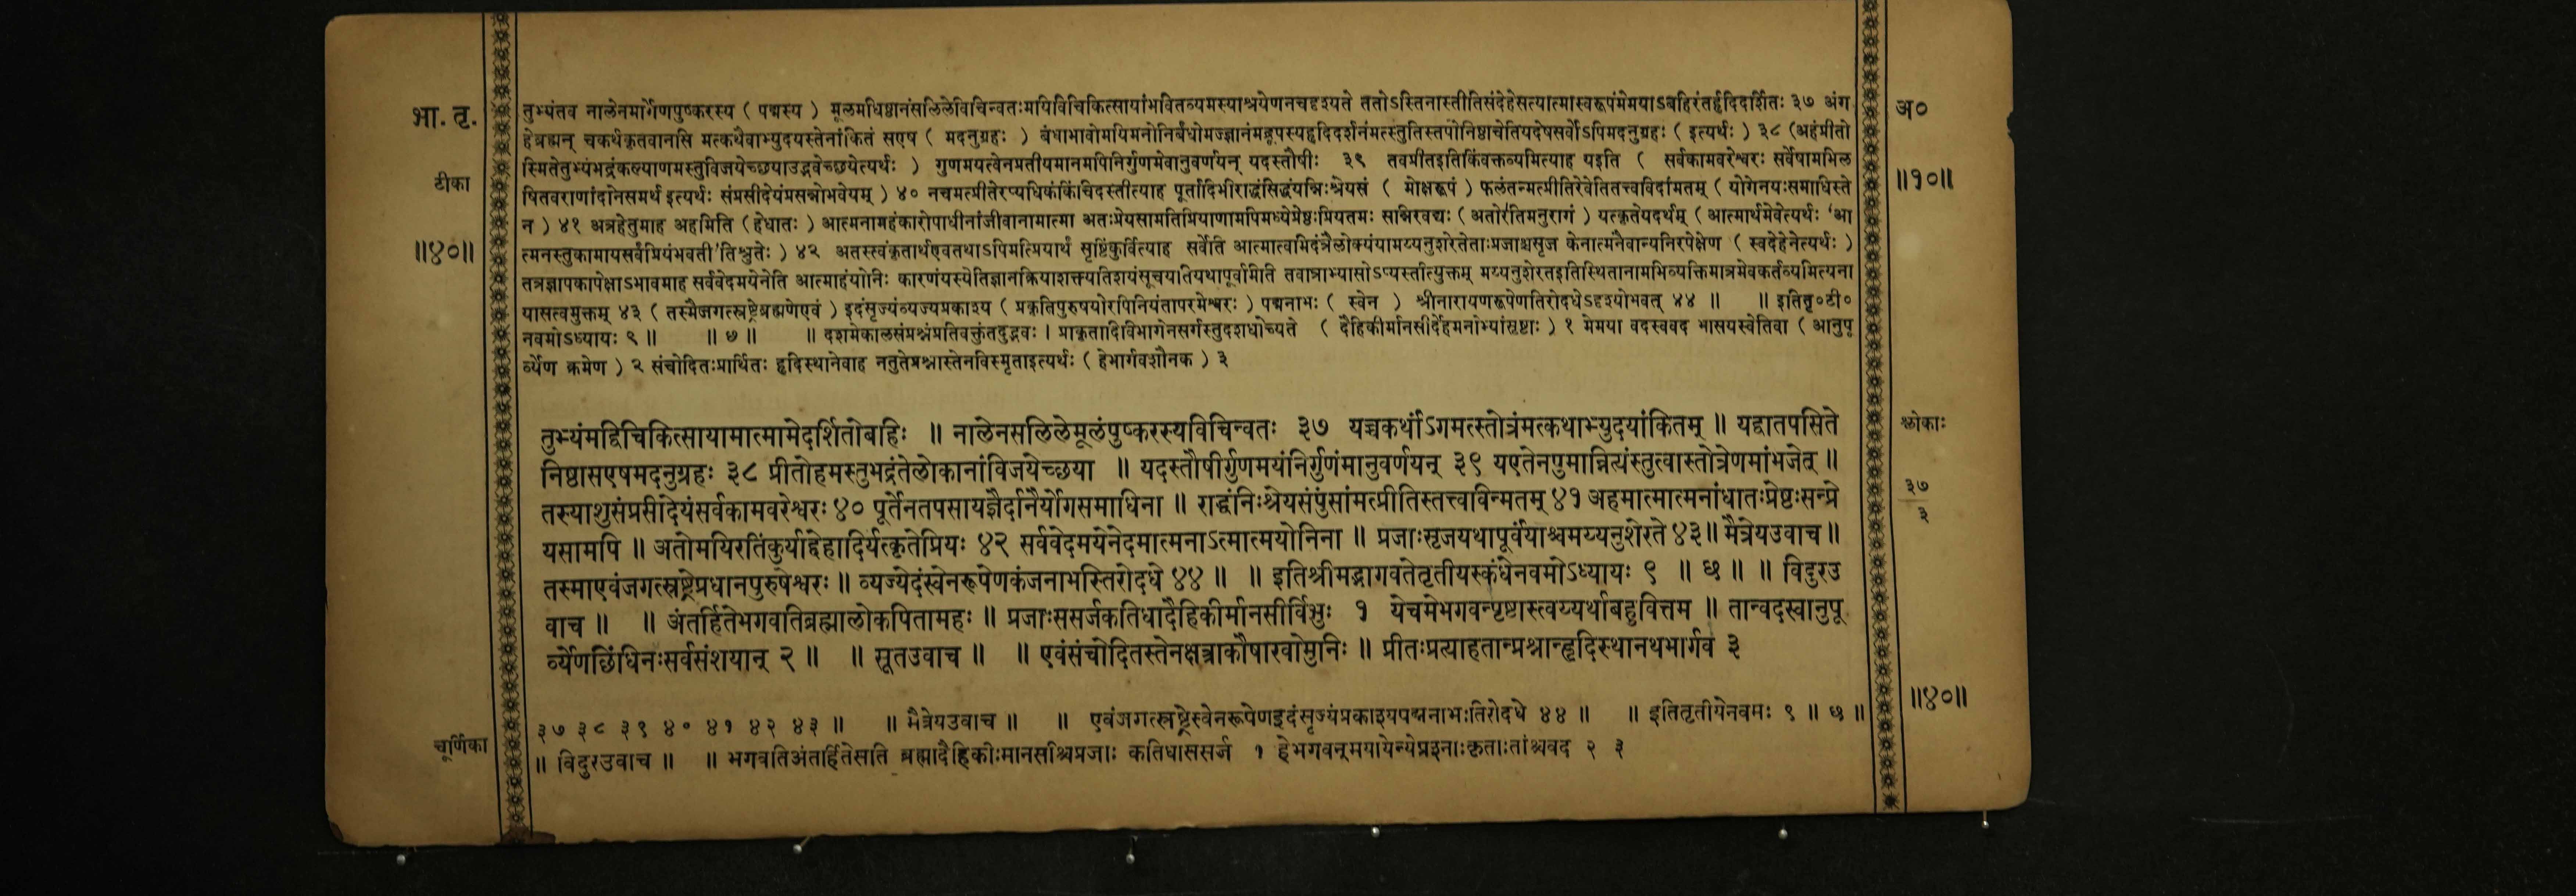 भा. तृ.
टीका
॥४०॥
तुभ्यंतव नालेनमार्गेणपुष्करस्य ( पद्मस्य ) मूलमधिष्ठानंसलिलेविचिन्वतःमयिविचिकित्सायांभवितव्यमस्याश्रयेणनचदृश्यते ततोऽस्तिनास्तीतिसंदेहेसत्यात्मास्वरूपंमेमयाऽबहिरंतर्हृदिदर्शितः ३७ अंग
हेब्रह्मन् चकर्थकृतवानसि मत्कथैवाभ्युदयस्तेनांकितं सएष ( मदनुग्रहः ) बंधाभावोमयिमनोनिर्बंधोमज्ज्ञानंमद्रूपस्यहृदिदर्शनंमत्स्तुतिस्तपोनिष्ठाचेतियदेषसर्वोऽपिमदनुग्रहः ( इत्यर्थः ) ३८ (अहंप्रीतो
स्मितेतुभ्यंभद्रंकल्याणमस्तुविजयेच्छयाउद्भवेच्छयेत्यर्थः ) गुणमयत्वेनप्रतीयमानमपिनिर्गुणमेवानुवर्णयन् यदस्तौषीः ३९ तवप्रीतइतिकिंवक्तव्यमित्याह यइति ( सर्वकामवरेश्वरः सर्वेषामभिल
षितवराणांदानेसमर्थ इत्यर्थः संप्रसीदेयंप्रसन्नोभवेयम् ) ४० नचमत्प्रीतेरप्यधिकंकिंचिदस्तीत्याह पूर्तादिभीराद्धंसिद्धंयन्निःश्रेयसं ( मोक्षरूपं ) फलंतन्मत्प्रीतिरेवेतितत्त्वविदांमतम् ( योगेनयःसमाधिस्ते
न ) ४१ अत्रहेतुमाह अहमिति (हेधातः ) आत्मनामहंकारोपाधीनांजीवानामात्मा अतःप्रेयसामतिप्रियाणामपिमध्येप्रेष्ठःप्रियतमः सान्निरवद्यः ( अतोरतिमनुरागं ) यत्कृतेयदर्थम् ( आत्मार्थमेवेत्यर्थः 'आ
त्मनस्तुकामायसर्वंप्रियंभवती'तिश्रुतेः ) ४२ अतस्त्वंकृतार्थएवतथाऽपिमत्प्रियार्थं सृष्टिंकुर्वित्याह सर्वेति आत्मात्वमिदंत्रैलोक्यंयामय्यनुशेरतेताःप्रजाश्चसृज केनात्मनैवान्यनिरपेक्षेण ( स्वदेहेनेत्यर्थः )
तत्रज्ञापकापेक्षाऽभावमाह सर्ववेदमयेनेति आत्माहंयोनिः कारणंयस्येतिज्ञानक्रियाशक्त्यतिशयंसूचयतियथापूर्वमिति तवात्राभ्यासोऽप्यस्तीत्युक्तम् मय्यनुशेरतइतिस्थितानामभिव्यक्तिमात्रमेवकर्तव्यमित्यना
यासत्वमुक्तम् ४३ ( तस्मैजगत्स्रष्ट्रेब्रह्मणेएवं ) इदंसृज्यंव्यज्यप्रकाश्य ( प्रकृतिपुरुषयोरपिनियंतापरमेश्वरः ) पद्मनाभः ( स्वेन ) श्रीनारायणरूपेणतिरोदधेऽदृश्योभवत् ४४ ॥ ॥ इतितृ०टी०
नवमोऽध्यायः ९ ॥ ॥ ७ ॥ ॥ दशमेकालसंप्रश्नंप्रतिवक्तुंतदुद्भवः । प्राकृतादिविभागेनसर्गस्तुदशधोच्यते ( दैहिकीर्मानसीर्देहमनोभ्यांसृष्टाः ) १ मेमया वदस्ववद भासयस्वेतिवा ( आनुपू
र्व्येण क्रमेण ) २ संचोदितःप्रार्थितः हृदिस्थानेवाह नतुतेप्रश्नास्तेनविस्मृताइत्यर्थः ( हेभार्गवशौनक ) ३
अ०
॥१०॥
तुभ्यंमद्विचिकित्सायामात्मामेदर्शितोबहिः ॥ नालेनसलिलेमूलंपुष्करस्यविचिन्वतः ३७ यच्चकर्थांऽगमत्स्तोत्रंमत्कथाभ्युदयांकितम् ॥ यद्वातपसिते
निष्ठासएषमदनुग्रहः ३८ प्रीतोहमस्तुभद्रंतेलोकानांविजयेच्छया ॥ यदस्तौषीर्गुणमयंनिर्गुणंमानुवर्णयन् ३९ यएतेनपुमान्नित्यंस्तुत्वास्तोत्रेणमांभजेत् ॥
तस्याशुसंप्रसीदेयंसर्वकामवरेश्वरः ४० पूर्तेनतपसायज्ञैर्दानैर्योगसमाधिना ॥ राद्धंनिःश्रेयसंपुंसांमत्प्रीतिस्तत्त्वविन्मतम् ४१ अहमात्मात्मनांधातःप्रेष्ठःसन्प्रे
यसामपि ॥ अतोमयिरतिंकुर्याद्देहादिर्यत्कृतेप्रियः ४२ सर्ववेदमयेनेदमात्मनाऽत्मात्मयोनिना ॥ प्रजाःसृजयथापूर्वंयाश्चमय्यनुशेरते ४३॥ मैत्रेयउवाच ॥
तस्माएवंजगत्स्रष्ट्रेप्रधानपुरुषेश्वरः ॥ व्यज्येदंस्वेनरूपेणकंजनाभस्तिरोदधे ४४ ॥ ॥ इतिश्रीमद्भागवतेतृतीयस्कंधेनवमोऽध्यायः ९ ॥ छ ॥ ॥ विदुरउ
वाच ॥ ॥ अंतर्हितेभगवतिब्रह्मालोकपितामहः ॥ प्रजाःससर्जकतिधादैहिकीर्मानसीर्विभुः १ येचमेभगवन्पृष्टास्त्वय्यर्थाबहुवित्तम ॥ तान्वदस्वानुपू
र्व्येणछिंधिनःसर्वसंशयान् २ ॥ ॥ सूतउवाच ॥ ॥ एवंसंचोदितस्तेनक्षत्त्राकौषारवोमुनिः ॥ प्रीतःप्रत्याहतान्प्रश्नान्हृदिस्थानथभार्गव ३
श्लोकाः
३७
३
॥४०॥
चूर्णिका
३७ ३८ ३९ ४० ४१ ४२ ४३ ॥ ॥ मैत्रेयउवाच ॥ ॥ एवंजगत्स्रष्ट्रेस्वेनरूपेणइदंसृज्यंप्रकाश्यपद्मनाभःतिरोदधे ४४ ॥ ॥ इतितृतीयेनवमः ९ ॥ छ ॥
॥ विदुरउवाच ॥ ॥ भगवतिअंतर्हितेसति ब्रह्मादैहिकीःमानसीश्चप्रजाः कतिधाससर्ज १ हेभगवन्मयायेन्येप्रश्नाःकृताःतांश्चवद २ ३